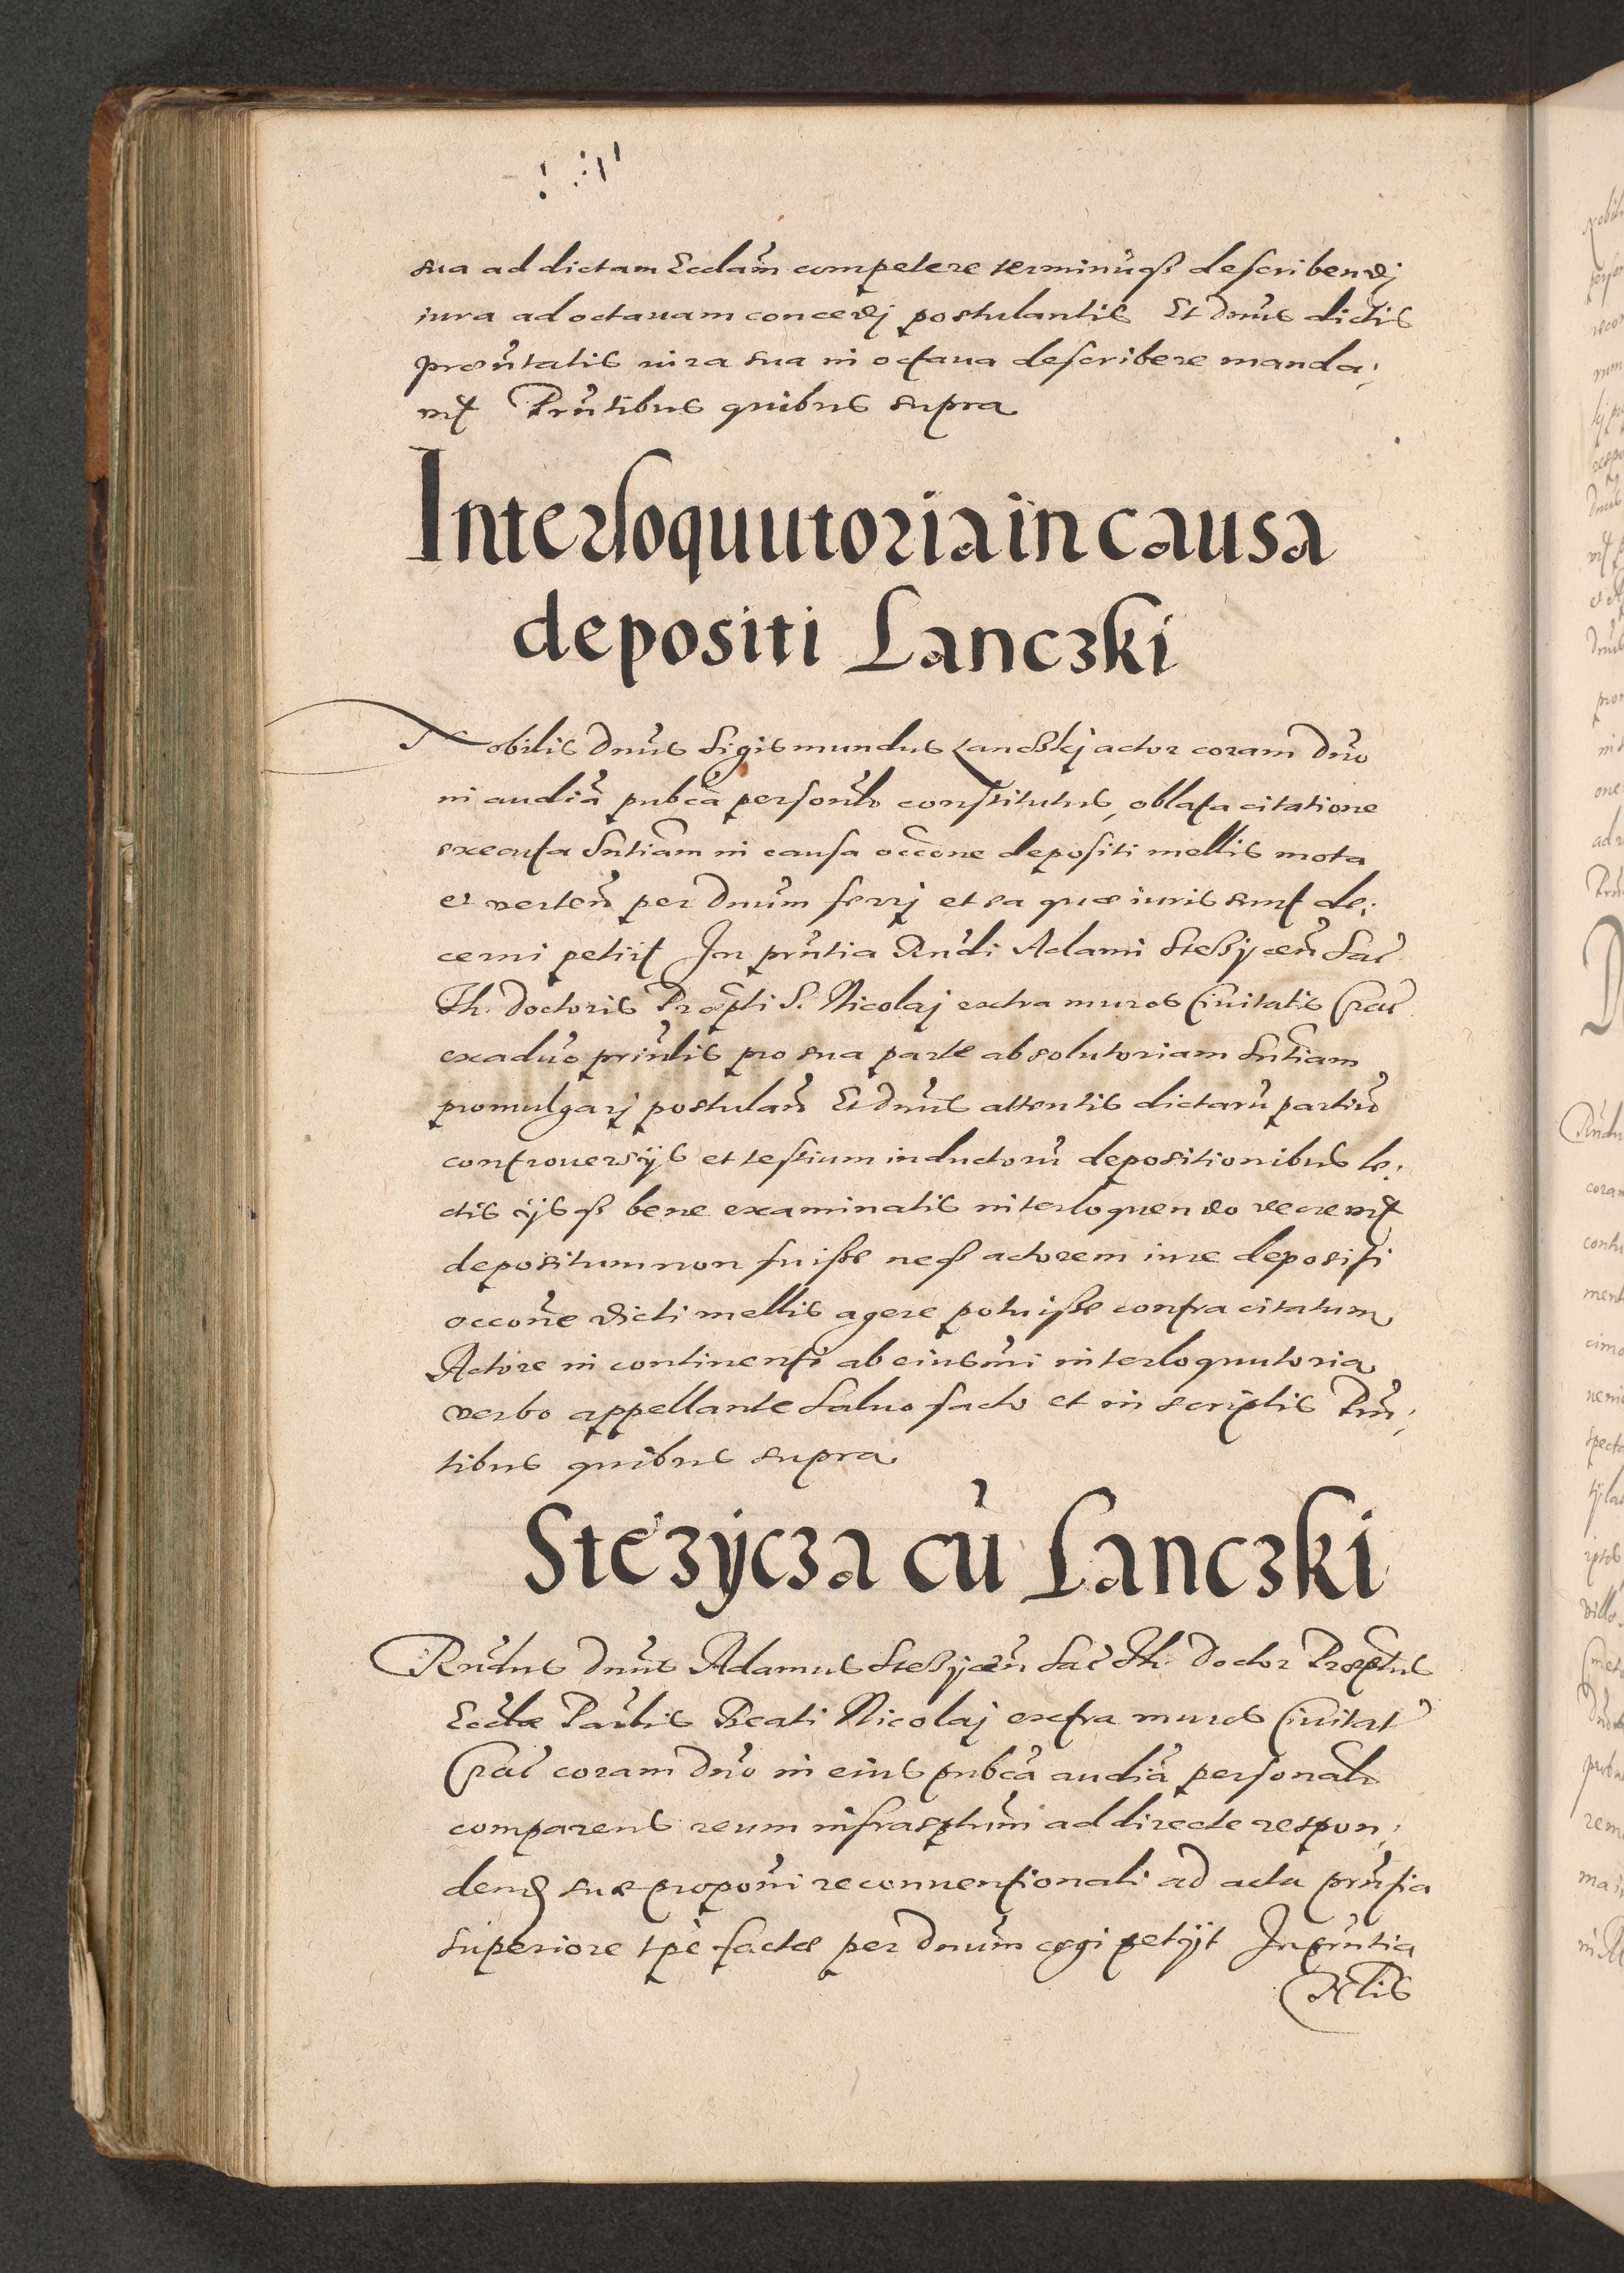 sua ad dictam Eccłam competere terminuqʒ describendj
iura ad octauam concedj postulantis Et Dnus dictis
praesentatis iura sua in octaua describere manda;
uit Pruntibus quibus supra
Interloquutoria in causa
depositi Lanczki
Nobilis Dnus Sigismundus Lanczkj actor coram Dno
in audia pubca personlr constitutus, oblata citatione
executa Sntiam in causa occone depositi mellis mota
et verten per Dnum ferrj et ea quae iuris sunt de;
cerni petiit In prntia Rndi Adami Stezycen Sac
Th. Doctoris Praepti S. Nicolaj extra muros Ciuitatis Crac
ex aduo prinlis pro sua parte absolutoriam Sntiam
promulgarj postulan Et Dnus attentis dictaru partiu
controuersijs et testium inductoru depositionibus le;
ctis ijsqʒ bene examinatis interloquendo decreuit
depositum non fuisse neqʒ actorem iure depositi
occone dicti mellis agere potuisse contra citatum
Actore in continenti ab eiusmi interloquutoria
verbo appellante Saluo facto et in scriptis Prn;
tibus quibus supra
Stezycza cu Lanczki
Rndus Dnus Adamus Stezycen Sac Th. Doctor Praeptus
Ecclae Parlis Beati Nicolaj extra muros Ciuitat
Crac coram Dno in eius pubca audia personalr
comparens reum infrasptum ad directe respon;
dend suae proponi reconuentionali ad acta prntia
superiore tpe factae per Dnum cogi petijt In prntia
Nlis